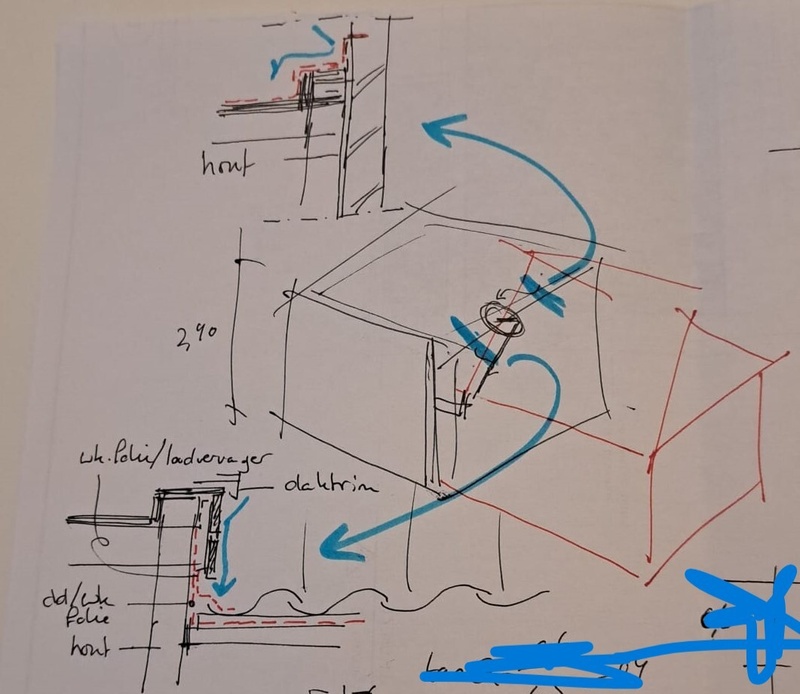 hout
2,90
wk.folie/loodvervager
daktrim
dd/wk
folie
hout